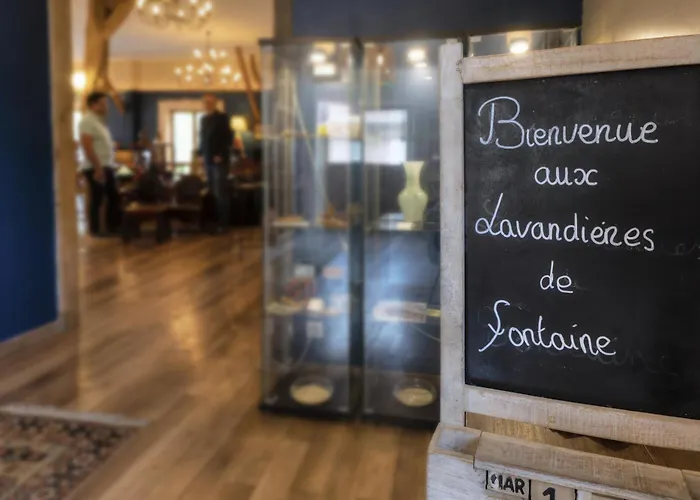 Bienvenue
aux
Lavandières
de
Fontaine
MAR 1